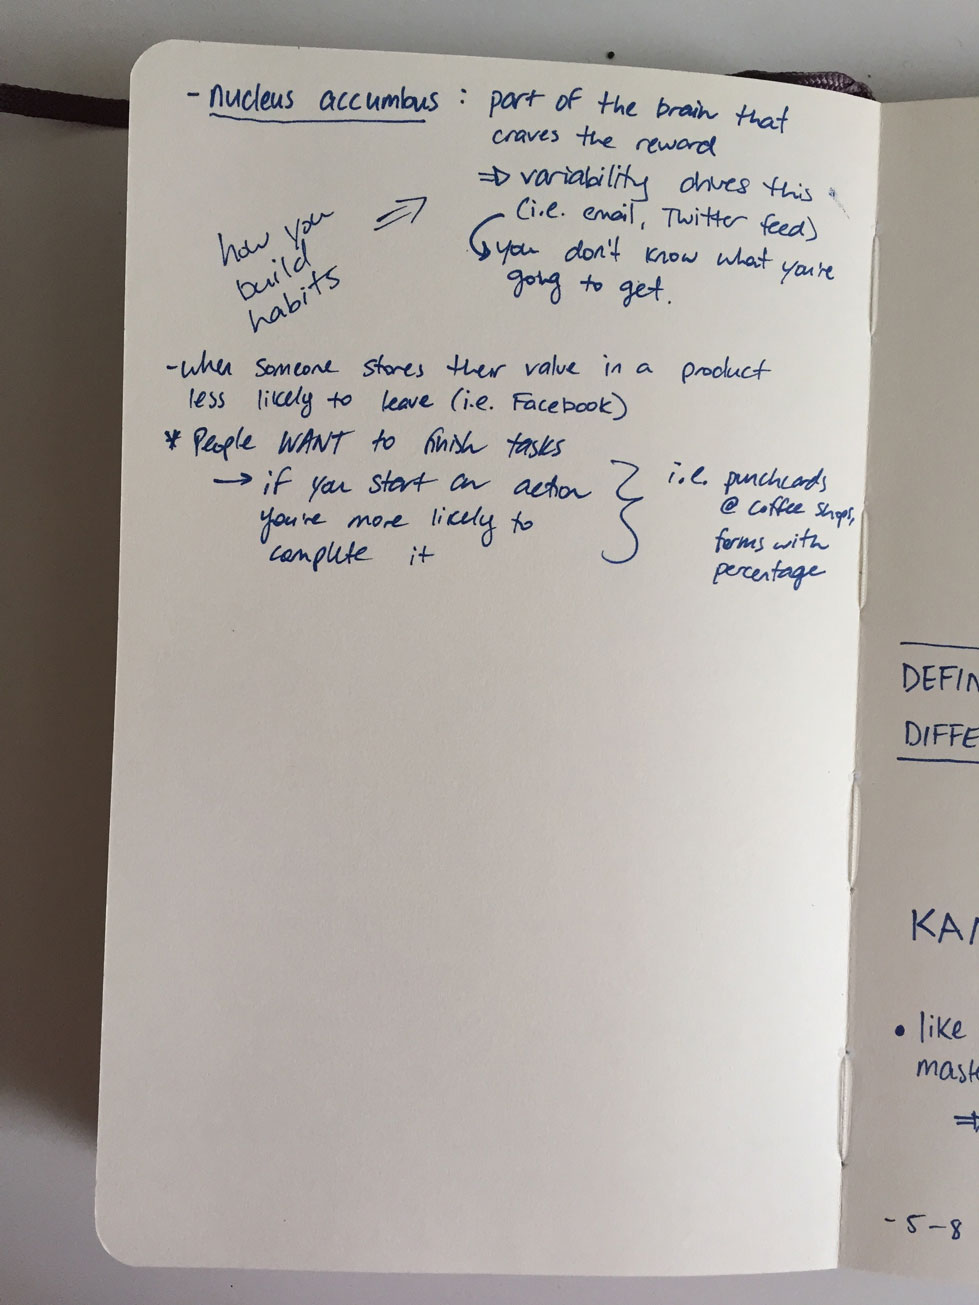 - nucleus accumbus : part of the brain that
craves the reward
⇒ variability drives this
(i.e. email, Twitter feed)
you don't know what you're
going to get.
how you
build
habits
⇒
- when someone stores their value in a product
less likely to leave (i.e. Facebook)
* People WANT to finish tasks
→ if you start an action
you're more likely to
complete it
i.e. punchcards
@ coffee shops,
forms with
percentage
DEFIN
DIFFE
KA
• like
mast
⇒
- 5-8